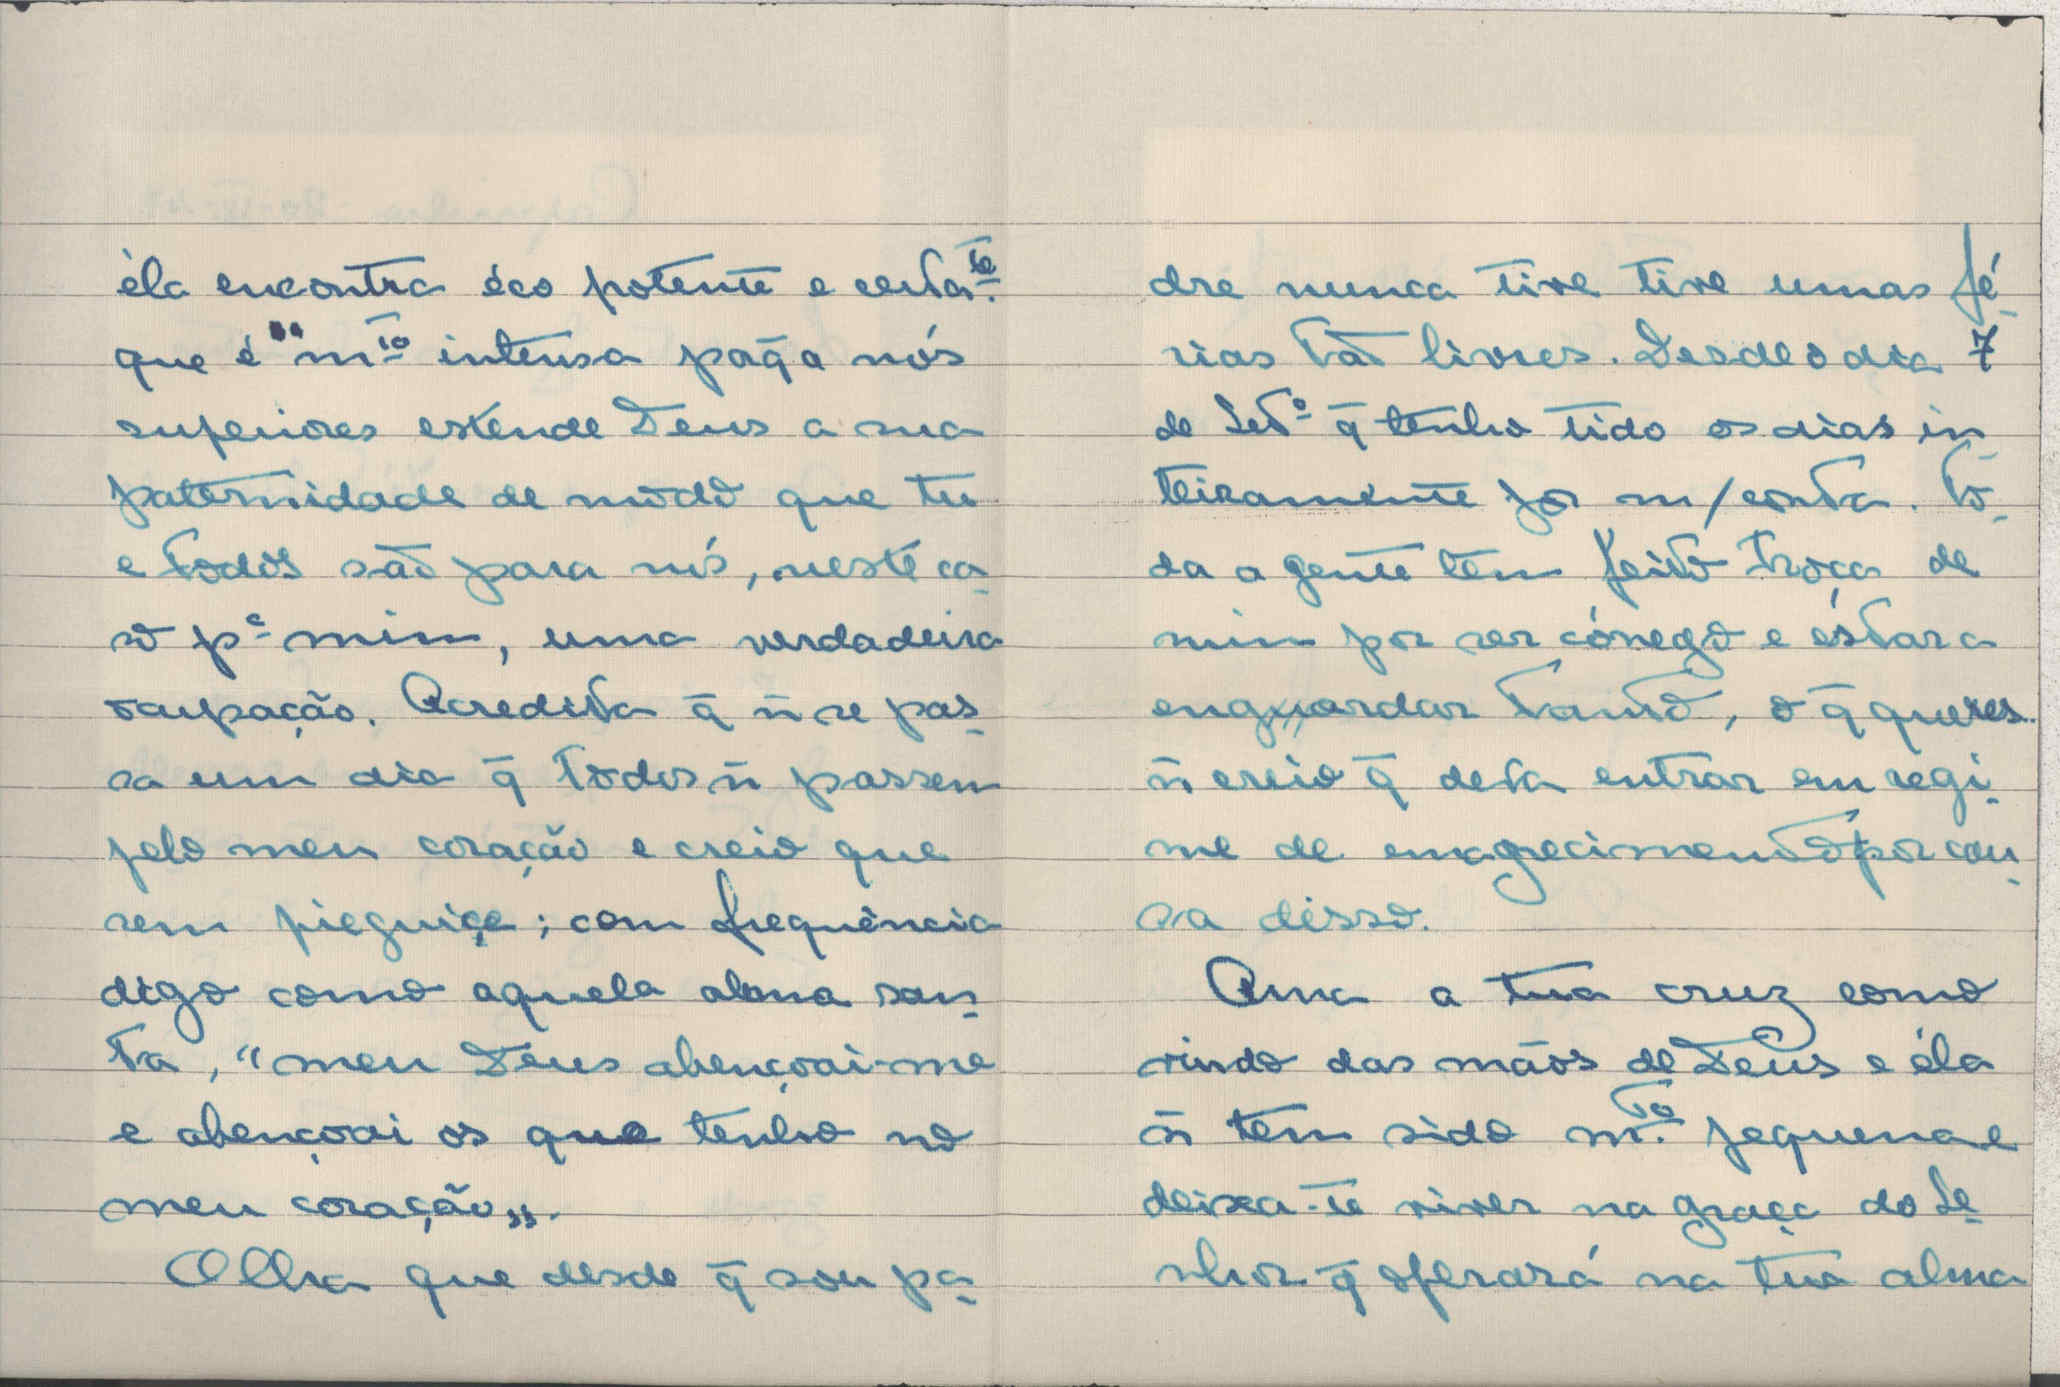 éla encontra éco potente e certa.te
que é mto intensa porq̄ a nós
superiores estende Deus a sua
paternidade de modo que tu
e todos são para nós, neste ca-
so pa mim, uma verdadeira
ocupação. Acredita q̄ ñ se pas-
sa um dia q̄ todos ñ passem
pelo meu coração e creio que
sem pieguiçe; com frequência
digo como aquela alma san-
ta, "meu Deus abençoai-me
e abençoai os que tenho no
meu coração".
Olha que desde q̄ sou pa-
dre nunca tive tive umas fé-
rias tão livres. Desde o dia 7
de Seto q̄ tenho tido os dias in-
teiramente por m/conta. Tô-
da a gente tem feito troça de
mim por ser cónego e éstar a
engordar tanto, o q̄ queres.
ñ creio q̄ deva entrar em regi-
me de emagrecimento por cau-
sa disso.
Ama a tua cruz como
vindo das mãos de Deus e éla
ñ tem sido mta pequena e
deixa-te viver na graça do Se-
nhor q̄ operará na tua alma